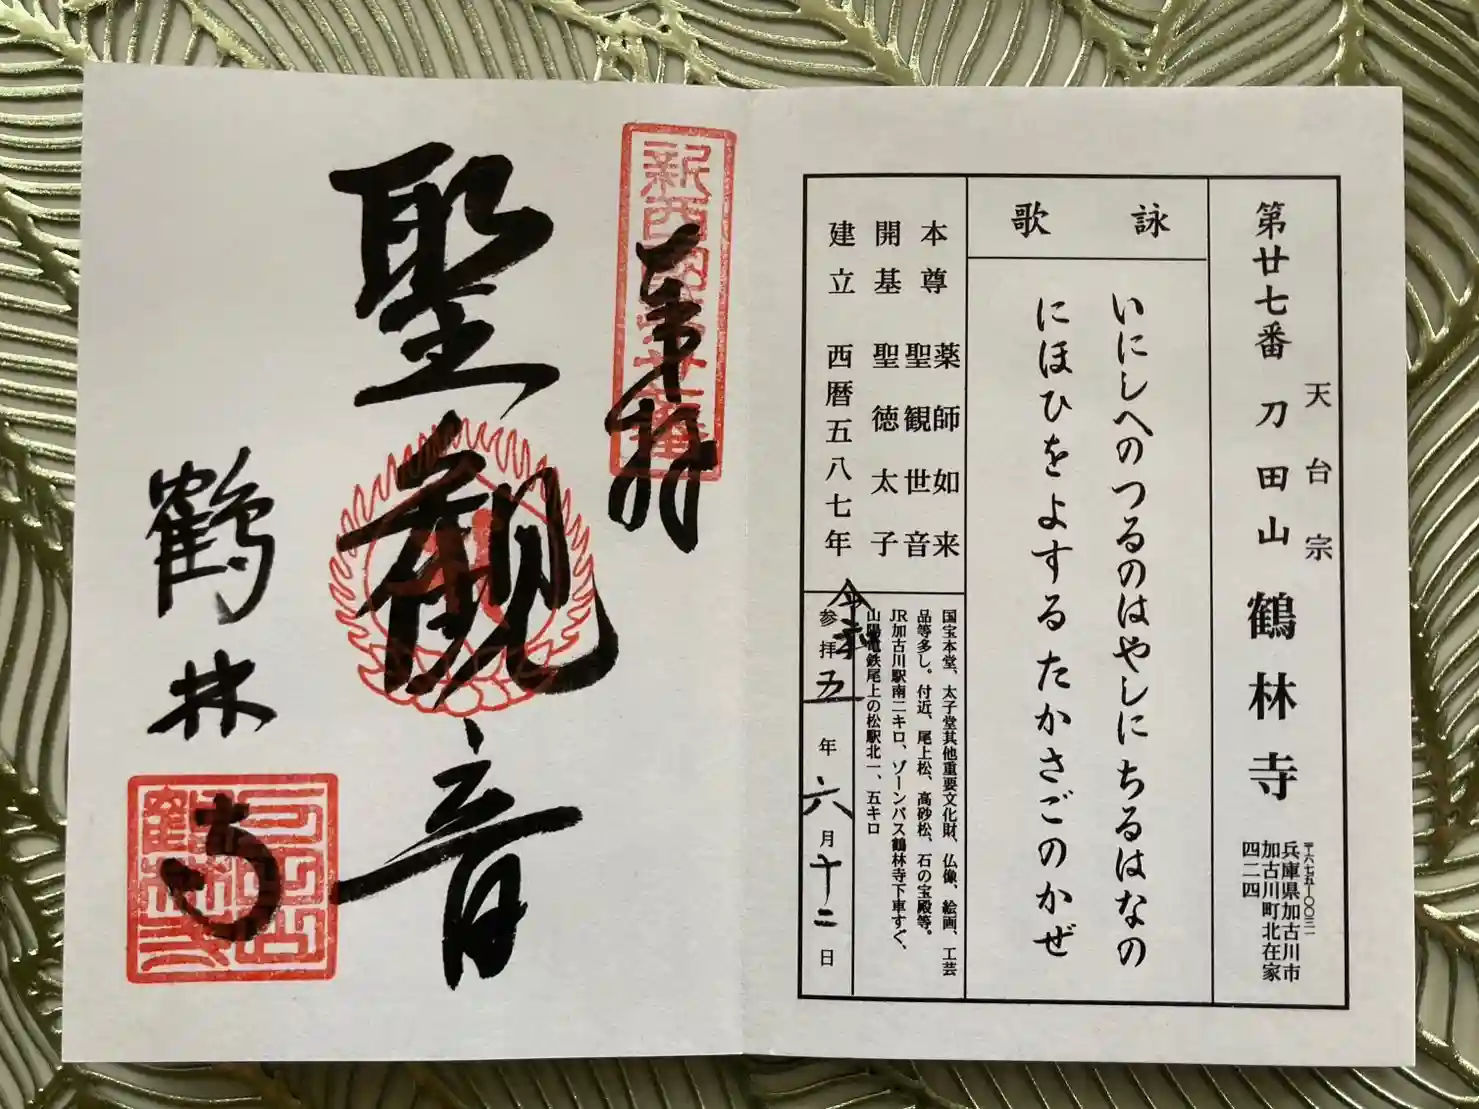 第廿七番 刀田山 鶴林寺
天台宗
〒六七五-〇〇三一
兵庫県加古川市
加古川町北在家
四二四
詠歌
いにしへのつるのはやしにちるはなの
にほひをよするたかさごのかぜ
本尊 薬師如来
聖観世音
開基 聖徳太子
建立 西暦五八七年
国宝本堂、太子堂其他重要文化財、仏像、絵画、工芸
品等多し。付近、尾上松、高砂松、石の宝殿等。
JR加古川駅南二キロ、ゾーンバス鶴林寺下車すぐ、
山陽電鉄尾上の松駅北一、五キロ
参拝 令和五年六月十二日
奉拝
聖観音
鶴林寺